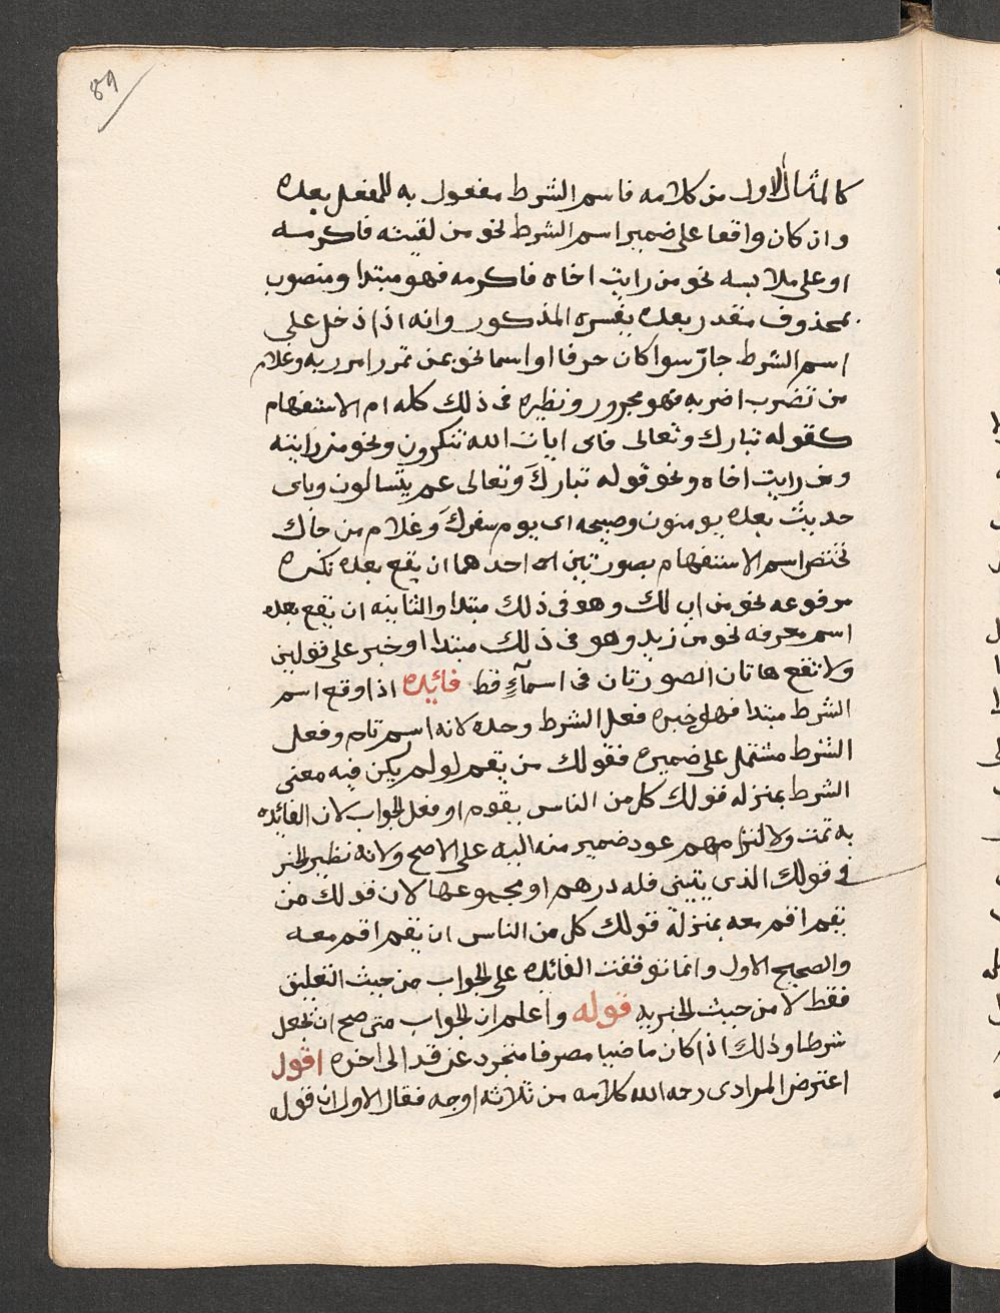 89
كالمثال الاول من كلامه فاسم الشرط مفعول به للفعل بعده
وان كان واقعا على ضمير اسم الشرط نحو من لقيته فاكرمه
او على ملابسه نحو من رايت اخاه فاكرمه فهو مبتدا ومنصوب
بمحذوف مقدر بعده يفسره المذكور وانه اذا دخل على
اسم الشرط جارّ سوا كان حرفا او اسما نحو بمن تمرر امرر به وغلام
من تضرب اضربه فهو مجرور ونظيره فى ذلك كله ام الاستفهام
كقوله تبارك وتعالى فاى ايات الله تنكرون ونحو من رايته
ومن رايت اخاه ونحو قوله تبارك وتعالى عم يتسالون وباى
حديث بعده يومنون وصبيحه اى يوم سفرك وغلام من جاك
تختص اسم الاستفهام بصورتين احداهما ان يقع بعده نكره
مرفوعه نحو من اب لك وهو فى ذلك مبتدا والثانيه ان يقع بعده
اسم معرفه نحو من زيد وهو فى ذلك مبتدا او خبر على قولين
ولا تقع هاتان الصورتان فى اسمآءٍ قط فائده اذا وقع اسم
الشرط مبتدا فهل خبره فعل الشرط وحده لانه اسم تام وفعل
الشرط مشتمل على ضميره فقولك من يقم لو لم يكن فيه معنى
الشرط بمنزله قولك كل من الناس يقوم او فعل الجواب لان الفائده
به تمت ولالتزامهم عود ضمير منه اليه على الاصح ولانه نظير الخبر
فى قولك الذى ياتينى فله درهم او مجموعهما لان قولك من
يقم اقم معه بمنزلة قولك كل من الناس ان يقم اقم معه
والصحيح الاول وانما توقفت الفائده على الجواب من حيث التعليق
فقط لا من حيث الخبريه قوله واعلم ان الجواب متى صح ان يجعل
شرطا وذلك اذا كان ماضيا مصرفا متجرد عن قد الى اخره اقول
اعترض المرادى رحمه الله كلامه من ثلاثه اوجه فقال الاول ان قوله